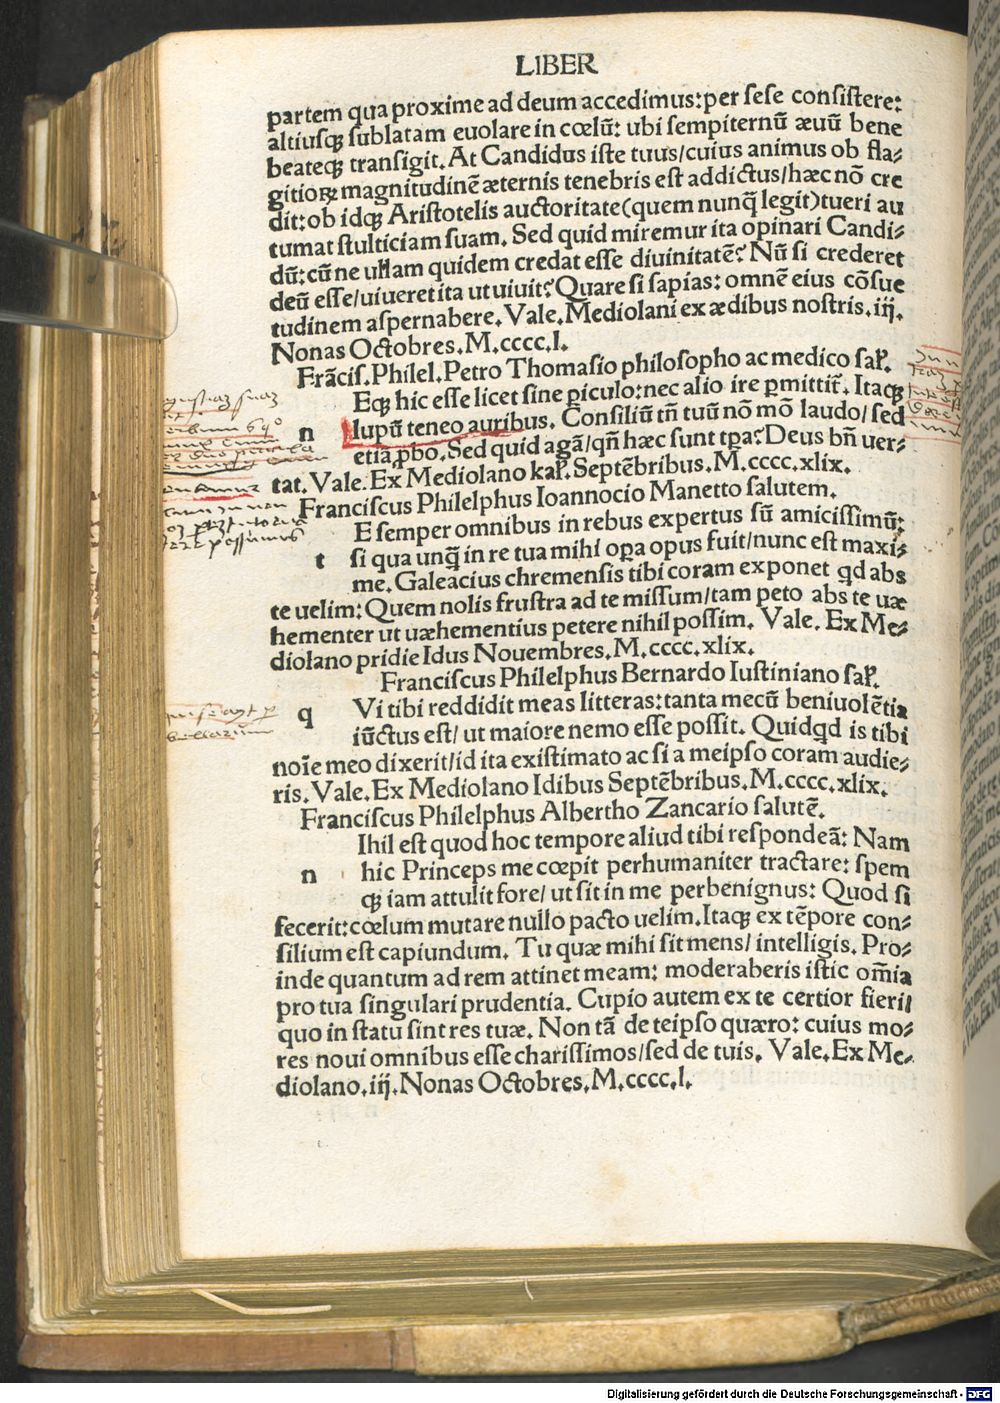 LIBER
partem qua proxime ad deum accedimus:per sese consistere:
altiusq; sublatam euolare in cœlũ: ubi sempiternũ æuũ bene
beateq; transigit. At Candidus iste tuus/cuius animus ob fla-
gitioꝝ magnitudinẽ æternis tenebris est addictus/hæc nõ cre
dit:ob idq; Aristotelis auctoritate(quem nunq̃ legit)tueri au
tumat stulticiam suam. Sed quid miremur ita opinari Candi-
dũ:cũ ne ullam quidem credat esse diuinitatẽ? Nũ si crederet
deũ esse/uiueret ita ut uiuit? Quare si sapias: omnẽ eius cõsue
tudinem aspernabere. Vale. Mediolani ex ædibus nostris. iij.
Nonas Octobres. M.cccc.l.
Frãcis. Philel. Petro Thomasio philosopho ac medico saꝉ.
Eq; hic esse licet sine ꝑiculo:nec alio ire ꝑmittit̃. Itaq;
n lupũ teneo auribus. Consiliũ tñ tuũ nõ mõ laudo/sed
etiã ꝓbo. Sed quid agã/qñ hæc sunt tꝑa? Deus bñ uer-
tat. Vale. Ex Mediolano kaꝉ. Septẽbribus. M.cccc.xlix.
Franciscus Philelphus Ioannocio Manetto salutem.
E semper omnibus in rebus expertus sũ amicissimũ:
t si qua unq̃ in re tua mihi oꝑa opus fuit/nunc est maxi-
me. Galeacius chremensis tibi coram exponet qd abs
te uelim: Quem nolis frustra ad te missum/tam peto abs te uæ
hementer ut uæhementius petere nihil possim. Vale. Ex Me-
diolano pridie Idus Nouembres. M.cccc.xlix.
Franciscus Philelphus Bernardo Iustiniano saꝉ.
q Vi tibi reddidit meas litteras:tanta mecũ beniuolẽtia
iũctus est/ ut maiore nemo esse possit. Quidqd is tibi
noie meo dixerit/id ita existimato ac si a meipso coram audie-
ris. Vale. Ex Mediolano Idibus Septẽbribus. M.cccc.xlix.
Franciscus Philelphus Albertho Zancario salutẽ.
Ihil est quod hoc tempore aliud tibi respondeã: Nam
n hic Princeps me cœpit perhumaniter tractare: spem
q; iam attulit fore/ ut sit in me perbenignus: Quod si
fecerit:cœlum mutare nullo pacto uelim. Itaq; ex tẽpore con-
silium est capiundum. Tu quæ mihi sit mens/ intelligis. Pro-
inde quantum ad rem attinet meam: moderaberis istic om̃ia
pro tua singulari prudentia. Cupio autem ex te certior fieri/
quo in statu sint res tuæ. Non tã de teipso quæro: cuius mo-
res noui omnibus esse charissimos/sed de tuis. Vale. Ex Me-
diolano. iij. Nonas Octobres. M.cccc.l.
Digitalisierung gefördert durch die Deutsche Forschungsgemeinschaft - DFG